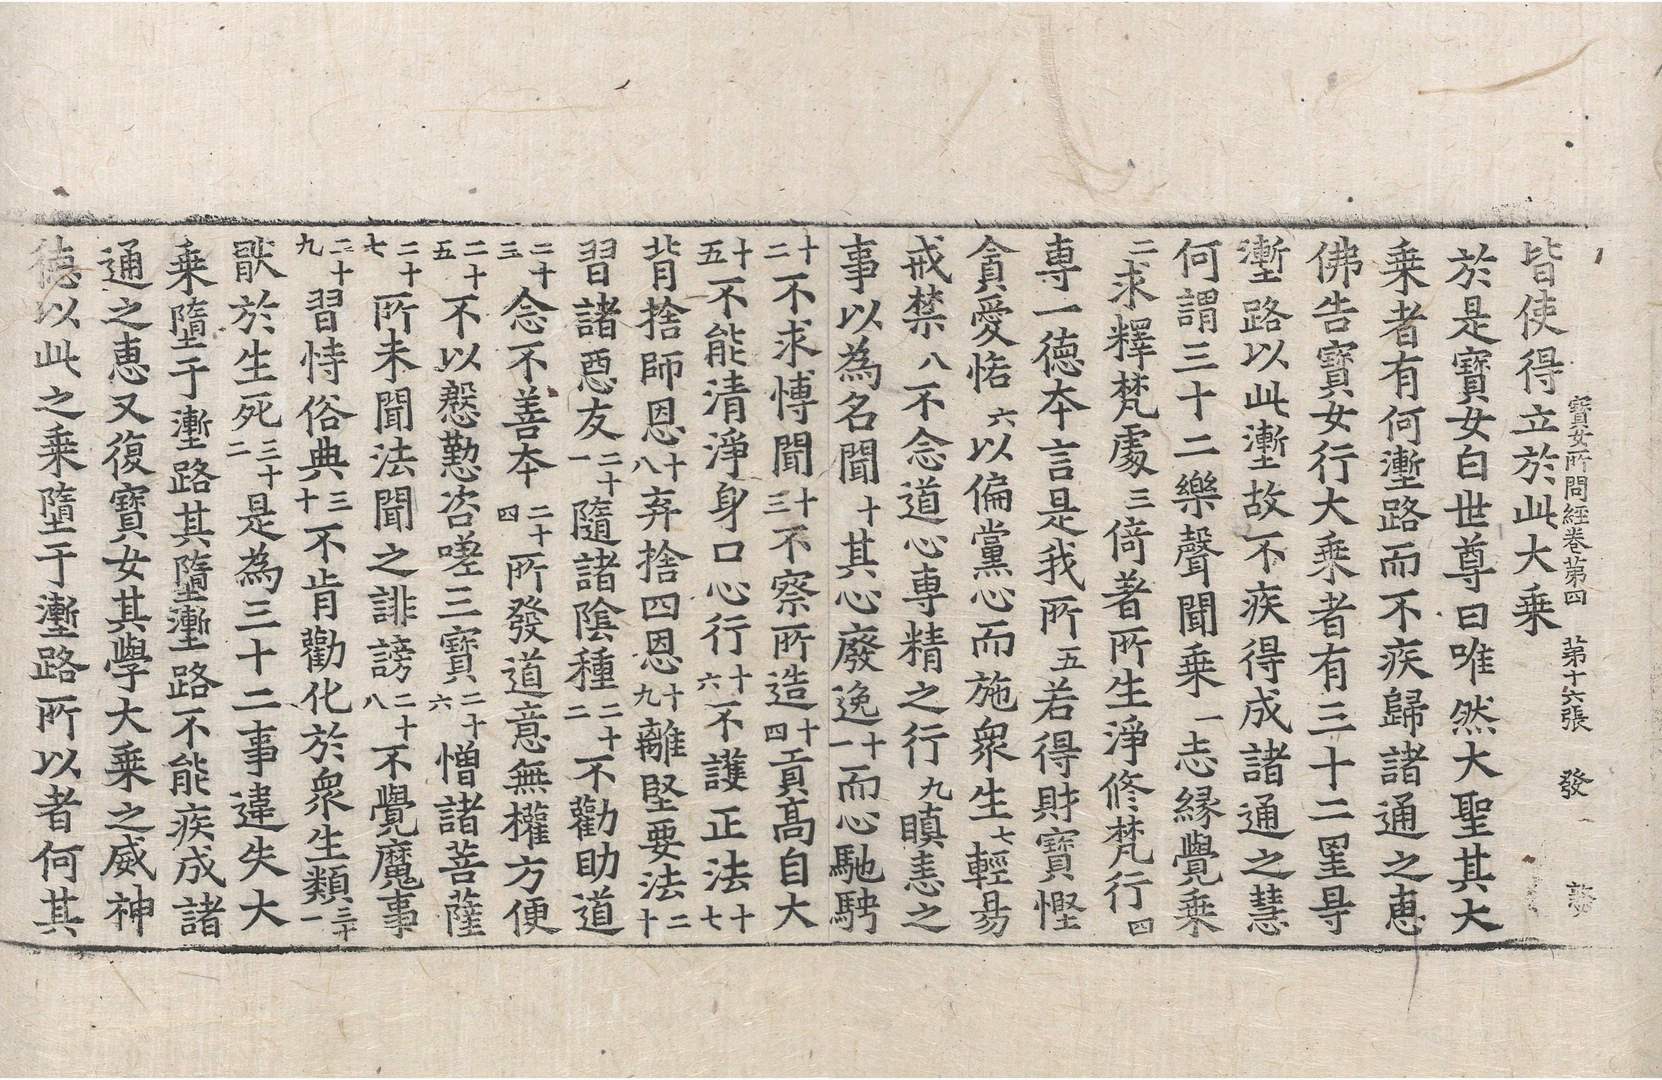 寶女所問經卷第四 第十六張 發
皆使得立於此大乘
於是寶女白世尊曰唯然大聖其大
乘者有何壍路而不疾歸諸通之恵
佛告寶女行大乘者有三十二罣㝵
壍路以此壍故不疾得成諸通之慧
何謂三十二樂聲聞乘一志緣覺乘
二求釋梵處三倚著所生淨修梵行四
専一德夲言是我所五若得財寶慳
貪愛悋六以偏黨心而施衆生七輕昜
戒禁八不念道心専精之行九瞋恚之
事以為名聞十其心廢逸十一而心馳騁
十二不求博聞十三不察所造十四貢髙自大
十五不能清淨身口心行十六不護正法十七
背捨師恩十八弃捨四恩十九離堅要法二十
習諸惡友二十一隨諸陰種二十二不勸助道
二十三念不善夲二十四所發道意無權方便
二十五不以慇懃咨嗟三寶二十六憎諸菩薩
二十七所未聞法聞之誹謗二十八不覺魔事
二十九習恃俗典三十不肯勸化於衆生類三十一
猒於生死三十二是為三十二事違失大
乘墮于壍路其墮壍路不能疾成諸
通之恵又復寶女其學大乘之威神
德以此之乘墮于壍路所以者何其